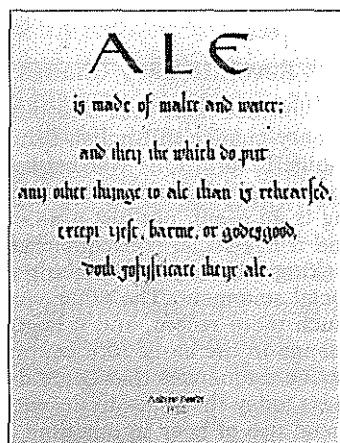 ALE
is made of malte and water:
and they the which do put
any other thynge to ale than is rehearſed,
except yeſt, barme, or godesgood,
doth ſofyſticate theyr ale.